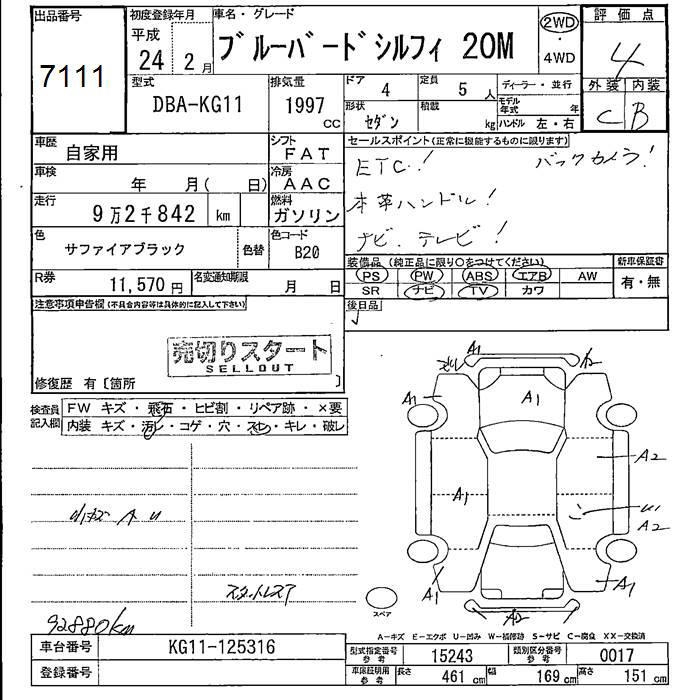 出品番号
7111
初度登録年月
平成
24 2月
車名・グレード
ブルーバードシルフィ 20M
2WD
・
4WD
評価点
4
型式
DBA-KG11
排気量
1997
CC
ドア
4
定員
5 人
形状
セダン
積載
kg
ディーラー・並行
モデル年式 年
ハンドル 左・右
外装 内装
C B
車歴
自家用
シフト
FAT
車検
年 月( 日)
冷房
AAC
走行
9万2千842 km
燃料
ガソリン
色
サファイアブラック
色替
色コード
B20
R券
11,570 円
名変通知期限
月 日
セールスポイント(正常に機能するものに限ります)
ETC! バックカメラ!
本革ハンドル!
ナビ、テレビ!
装備品(純正品に限り○をつけてください)
新車保証書
PS PW ABS エアB AW
有・無
SR ナビ TV カワ
後日品
注意事項申告欄(不具合内容等は具体的に記入して下さい)
売切りスタート
SELLOUT
修復歴 有〔箇所 〕
検査員記入欄
FW キズ・飛石・ヒビ割・リペア跡・×要
内装 キズ・汚レ・コゲ・穴・スレ・キレ・破レ
A1
A1
A1
A2
A1
A2
A1
A1
A2
スペア
92880km
A-キズ E-エクボ U-凹み W-補修跡 S-サビ C-腐食 XX-交換済
車台番号
KG11-125316
登録番号
型式指定番号
参考
15243
類別区分番号
参考
0017
車庫証明用
参考
長さ
461 cm
幅
169 cm
高さ
151 cm